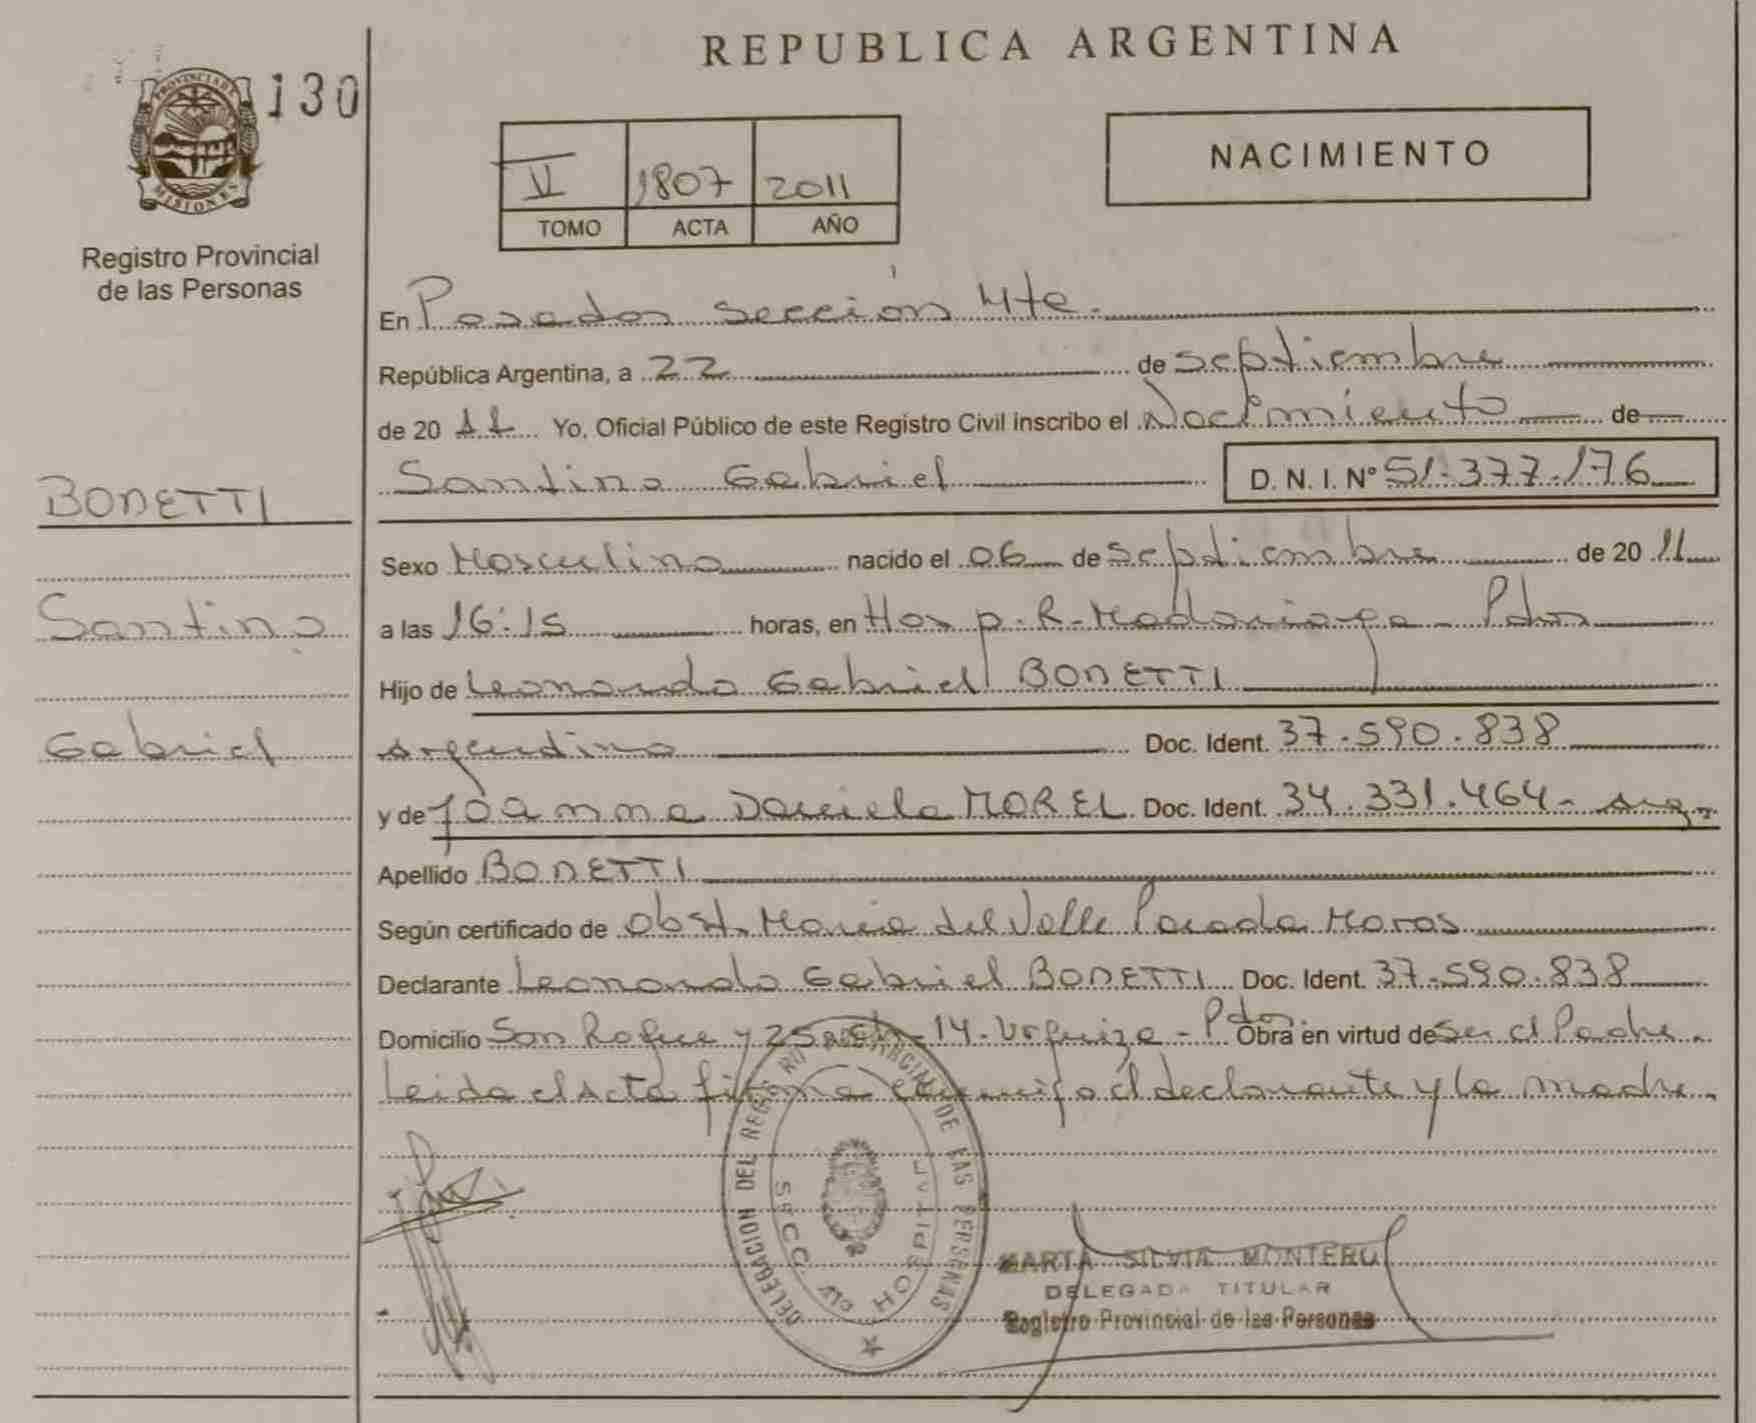 REPUBLICA ARGENTINA
PROVINCIA DE
MISIONES
130
Registro Provincial
de las Personas
II 1807 2011
TOMO ACTA AÑO
NACIMIENTO
En Posadas Sección 4te.
República Argentina, a 22 de septiembre
de 20 11 Yo, Oficial Público de este Registro Civil inscribo el Nacimiento de
Santino Gabriel D. N. I. Nº 51.377.176
BONETTI
Santino
Gabriel
Sexo Masculino nacido el 06 de septiembre de 20 11
a las 16:15 horas, en Hosp. R. Madariaga - Pdas
Hijo de Leonardo Gabriel BONETTI
argentino Doc. Ident. 37.590.838
y de Joanna Daniela MOREL Doc. Ident. 34.331.464 - arg.
Apellido BONETTI
Según certificado de Obst. Maria del Valle Posada
Declarante Leonardo Gabriel BONETTI Doc. Ident. 37.590.838
Domicilio San Roque y 25 14 - Urquiza - Pdas. Obra en virtud de ser el Padre.
Leida el Acta firma conmigo el declarante y la madre.
DELEGACION DEL REGISTRO PROVINCIAL DE LAS PERSONAS
SECC. 4ta HOSPITAL
MARTA SILVIA MONTERO
DELEGADA TITULAR
Registro Provincial de las Personas